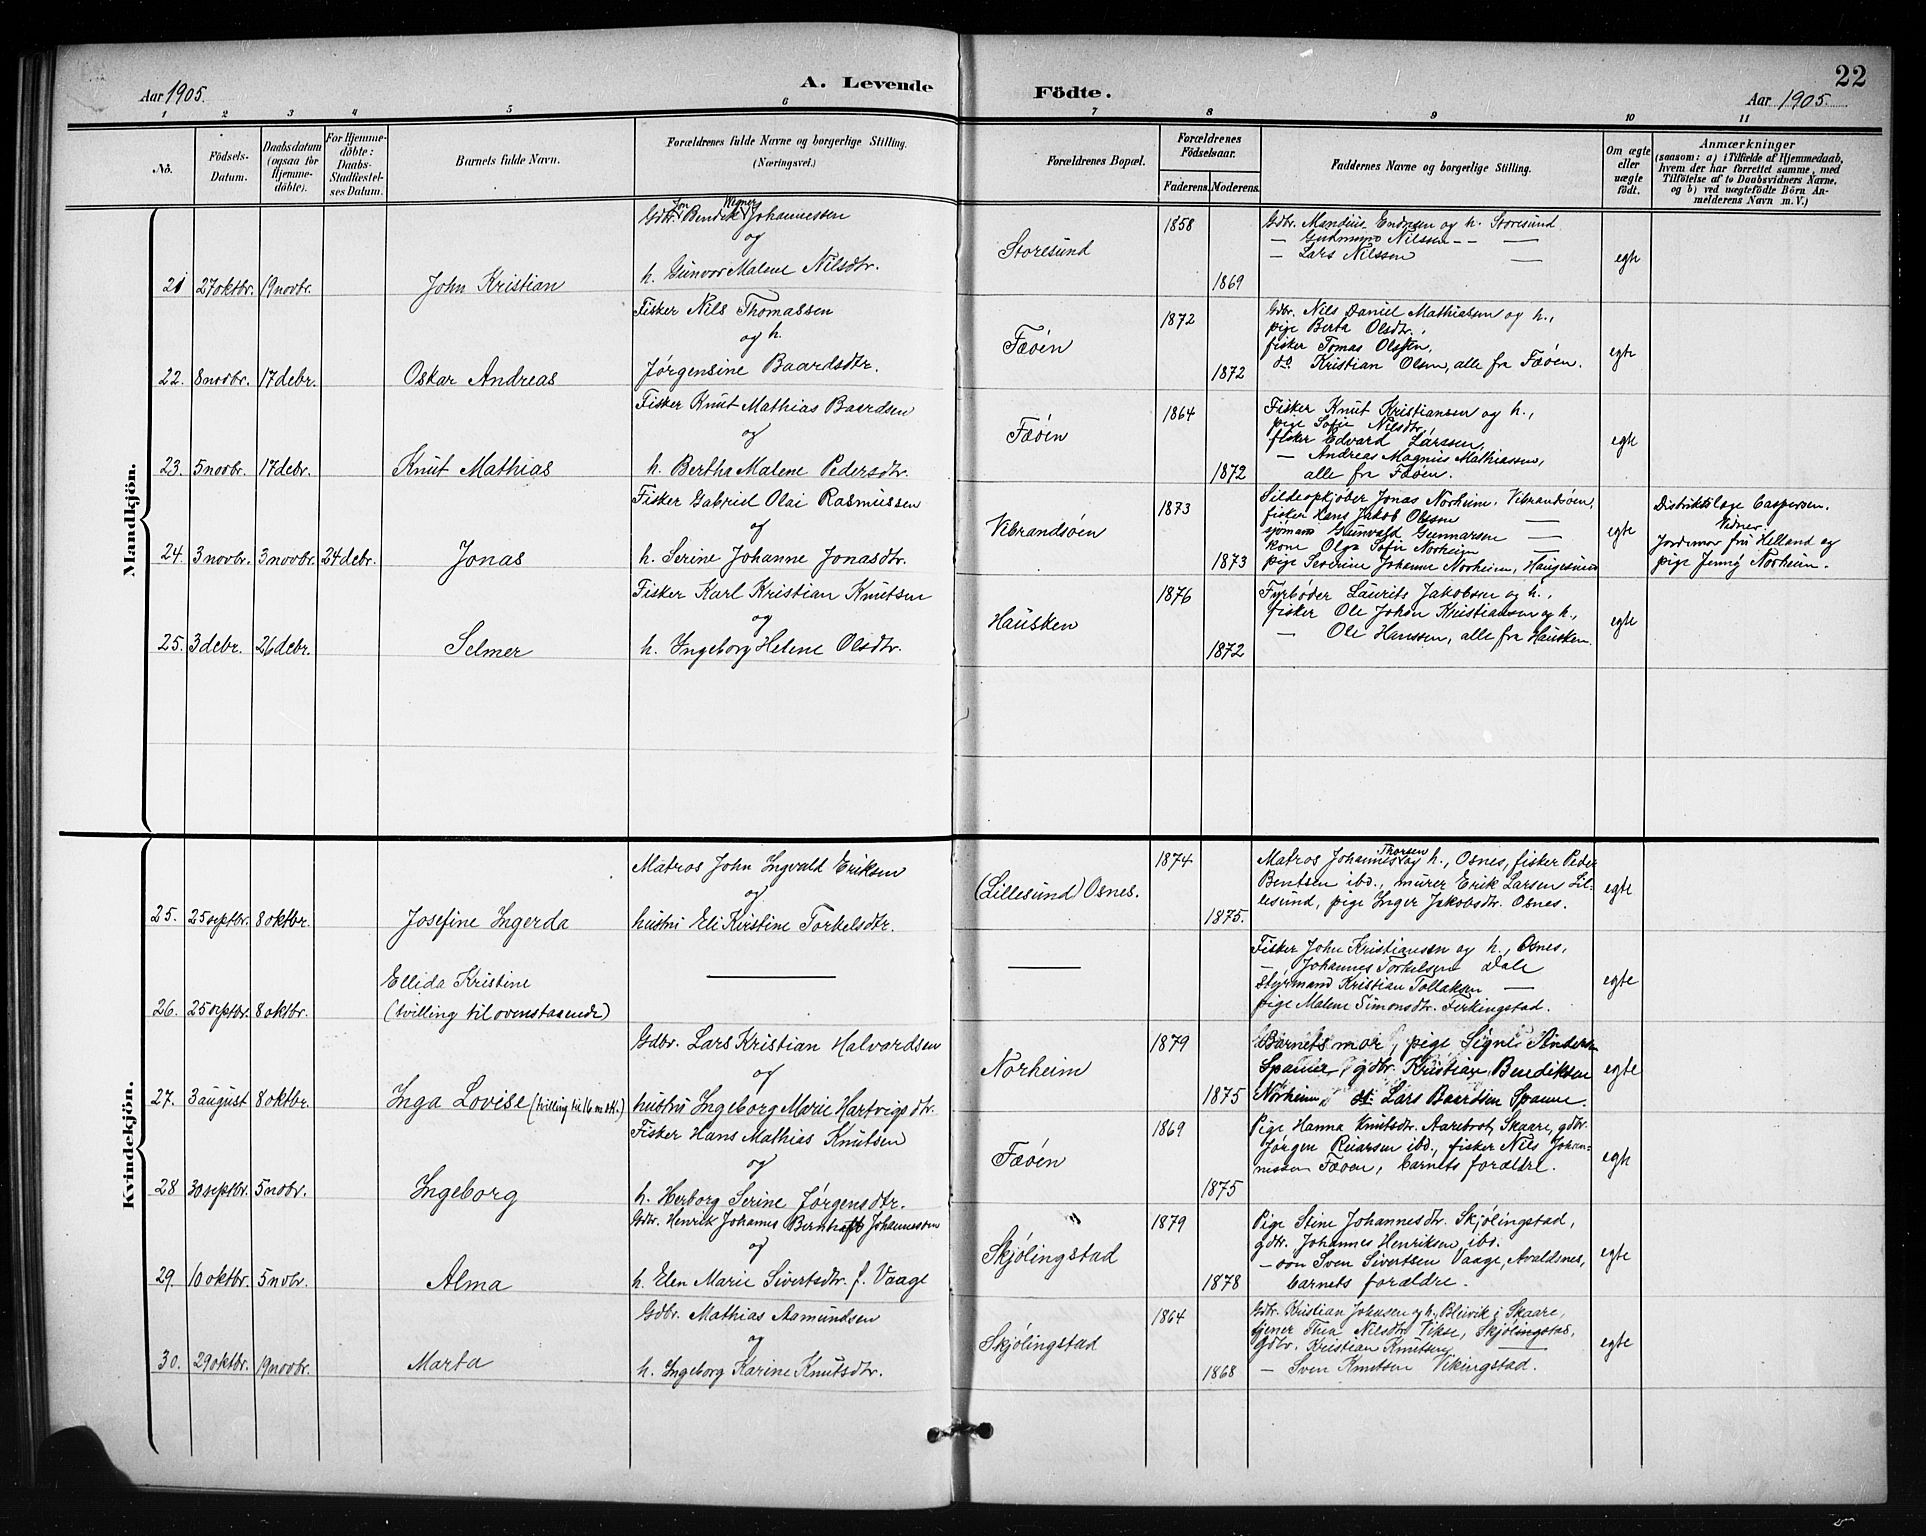 Aar 1905.
A. Levende Födte.
22
Aar 1905.
1 2 3 4 5 6 7 8 9 10 11
No.
Födsels-Datum.
Daabsdatum (ogsaa for Hjemmedöbte).
For Hjemmedöbte: Daabs-Stadfæstelses Datum.
Barnets fulde Navn.
Forældrenes fulde Navne og borgerlige Stilling. (Næringsvei.)
Forældrenes Bopæl.
Forældrenes Födselsaar.
Faderens. Moderens.
Faddernes Navne og borgerlige Stilling.
Om ægte eller uægte födt.
Anmærkninger
(saasom: a) i Tilfælde af Hjemmedaab, hvem der har forrettet samme, med Tilföielse af to Daabsvidners Navne, og b) ved uægtefödte Börn Anmelderens Navn m. V.)
Mandkjön.
21 27 oktbr. 19 novbr. John Kristian
Gdbr. Bendik Johannessen
og
h. Gunvor Malene Nilsdtr.
Storesund
1858
1869
Gdbr. Mandius Endresen og h. Storesund
— Gudmund Nilssen — —
— Lars Nilssen —
egte
22. 8 novbr. 17 debr. Oskar Andreas
Fisker Nils Thomassen
og h.
Jørgensine Baardsdtr.
Fæøen
1872
1872
Gdbr. Nils Daniel Mathiasen og h.,
pige Berta Olsdtr.
fisker Tomas Olssen,
do Kristian Olsen, alle fra Fæøen.
egte
23. 5 novbr. 17 debr. Knut Mathias
Fisker Knut Mathias Baardsen
og
h. Bertha Malene Pedersdtr.
Fæøen
1864
1872
Fisker Knut Kristianssen og h.,
pige Sofie Nilsdtr.
fisker Edvard Larssen,
— Andreas Magnus Mathiassen,
alle fra Fæøen.
egte
24. 3 novbr. 3 novbr. 24 debr. Jonas
Fisker Gabriel Olai Rasmussen
og
h. Serine Johanne Jonasdtr.
Vibrandsøen
1873
1873
Sildeopkjøber Jonas Norheim, Vibrandsøen,
fisker Hans Jakob Olsson —
sjømand Gunvald Gunnarsen —
kone Olga Sofie Norheim —
pige Severine Johanne Norheim, Haugesund
egte
Distriktslæge Caspersen.
Vidner
Jordemor fru Helland og
pige Jenny Norheim.
25. 3 debr. 26 debr. Selmer
Fisker Karl Kristian Knutsen
og
h. Ingeborg Helene Olsdtr.
Hausken
1876
1872
Fyrbøder Laurits Jakobsen og h.,
fisker Ole Johan Kristiansen og h.,
— Ole Hanssen, alle fra Hausken.
egte
Kvindekjön.
25. 25 septbr. 8 oktbr. Josefine Ingerda
Matros John Ingvald Eriksen
og
hustru Eli Kirstine Torkelsdtr.
(Lillesund) Osnes.
1874
1875.
Matros Johannes Thorsen og h., Osnes, fisker Peder
Bentsen ibd., murer Erik Larsen Lil-
lesund, pige Inger Jakobsdtr. Osnes.
egte
26. 25 septbr. 8 oktbr. Ellida Kristine
(tvilling til ovenstaaende)
—
—
Fisker John Kristiansen og h., Osnes,
— Johannes Torkelsen Dale
Styrmand Kristian Tollaksen —
pige Malene Simonsdtr. Ferkingstad.
egte
27. 3 august 8 oktbr. Inga Lovise (tvilling til 16 m.tk.)
Gdbr. Lars Kristian Halvardsen
og
hustru Ingeborg Marie Hartvigsdtr.
Norheim
1879
1875
Barnets mor, pige Signe Anders-
Spanne, gdbr. Kristian Bendiksen
Norheim, Lars Baardsen Spanne.
egte
28 30 septbr. 5 nobr. Ingeborg
Fisker Hans Mathias Knutsen
og
h. Herborg Serine Jørgensdtr.
Fæøen
1869
1875
Pige Hanna Knutsdtr. Aarebrot, Skaare, gdbr.
Jørgen Reiarsen ibd., fisker Nils Johan-
nissen Fæøen, barnets forældre.
egte
29. 10 oktbr. 5 nobr. Alma
Gdbr. Henrik Johannes Berntraft Johannessen
og
h. Elen Marie Sivertsdtr. f. Vaage
Skjølingstad
1879
1878
Pige Stine Johannesdtr. Skjølingstad,
gdbr. Johannes Henriksen ibd.
— søn Sven Sivertsen Vaage, Avaldsnes,
barnets forældre.
egte
30. 29 oktbr. 19 novbr. Marta
Gdbr. Mathias Aamundsen
og
h. Ingeborg Karine Knutsdtr.
Skjølingstad
1864
1868
Gdbr. Kristian Johnsen og h., Bleivik i Skaare,
tjener Thea Nilsdtr. Vikse, Skjølingstad,
Gdbr. Kristian Knutsen —
— Sven Knutsen Vikingstad.
egte